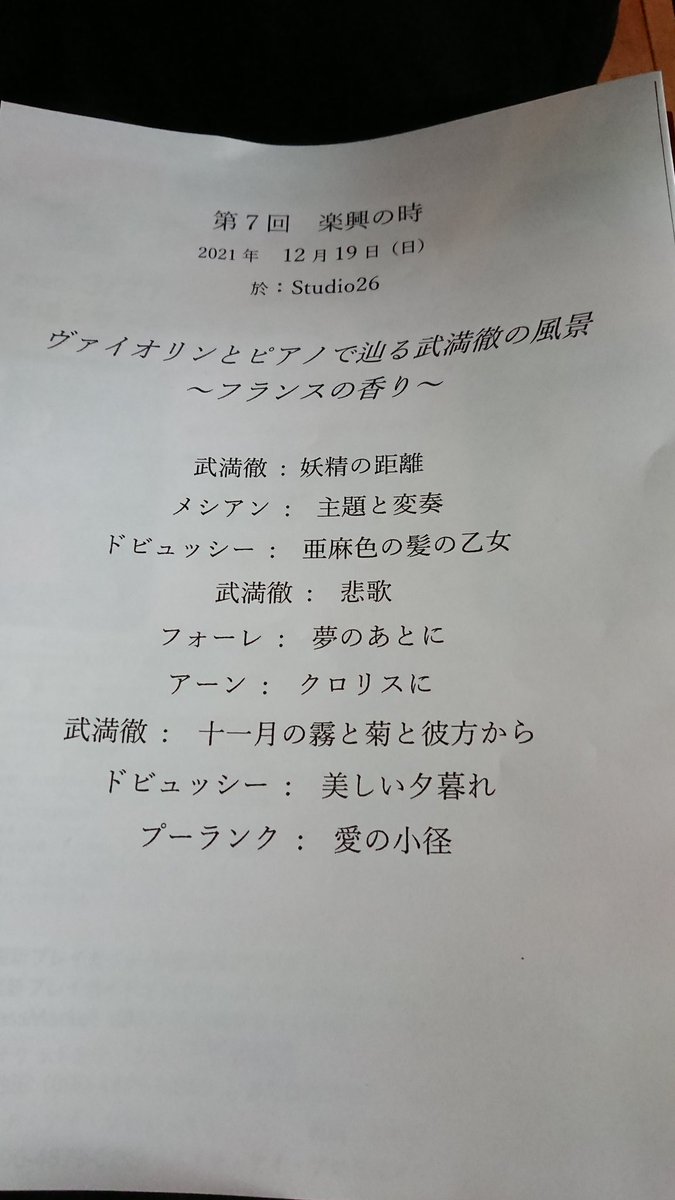 第7回 楽興の時
2021年 12月19日（日）
於：Studio26
ヴァイオリンとピアノで辿る武満徹の風景
～フランスの香り～
武満徹 : 妖精の距離
メシアン : 主題と変奏
ドビュッシー : 亜麻色の髪の乙女
武満徹 : 悲歌
フォーレ : 夢のあとに
アーン : クロリスに
武満徹 : 十一月の霧と菊と彼方から
ドビュッシー : 美しい夕暮れ
プーランク : 愛の小径